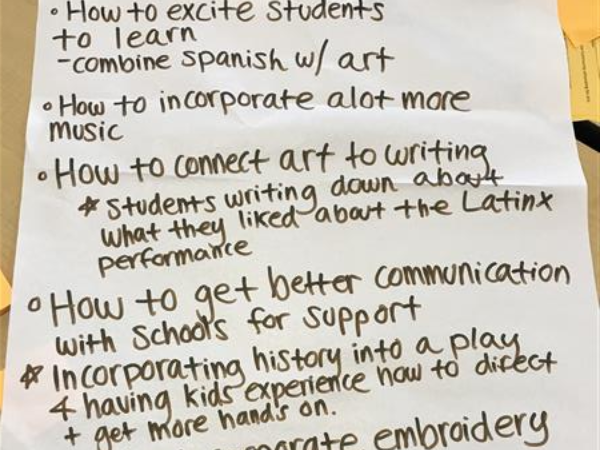 • How to excite students
to learn
-combine spanish w/ art
• How to incorporate alot more
music
• How to connect art to writing
* Students writing down about
what they liked about the Latinx
performance
• How to get better communication
with Schools for support
* Incorporating history into a play
& having kids experience how to direct
+ get more hands on.
embroidery